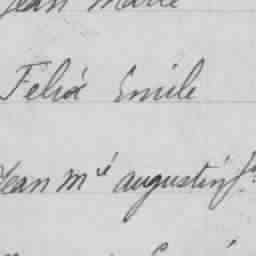 Jean Marie
Felix Emile
Jean Mie augustin